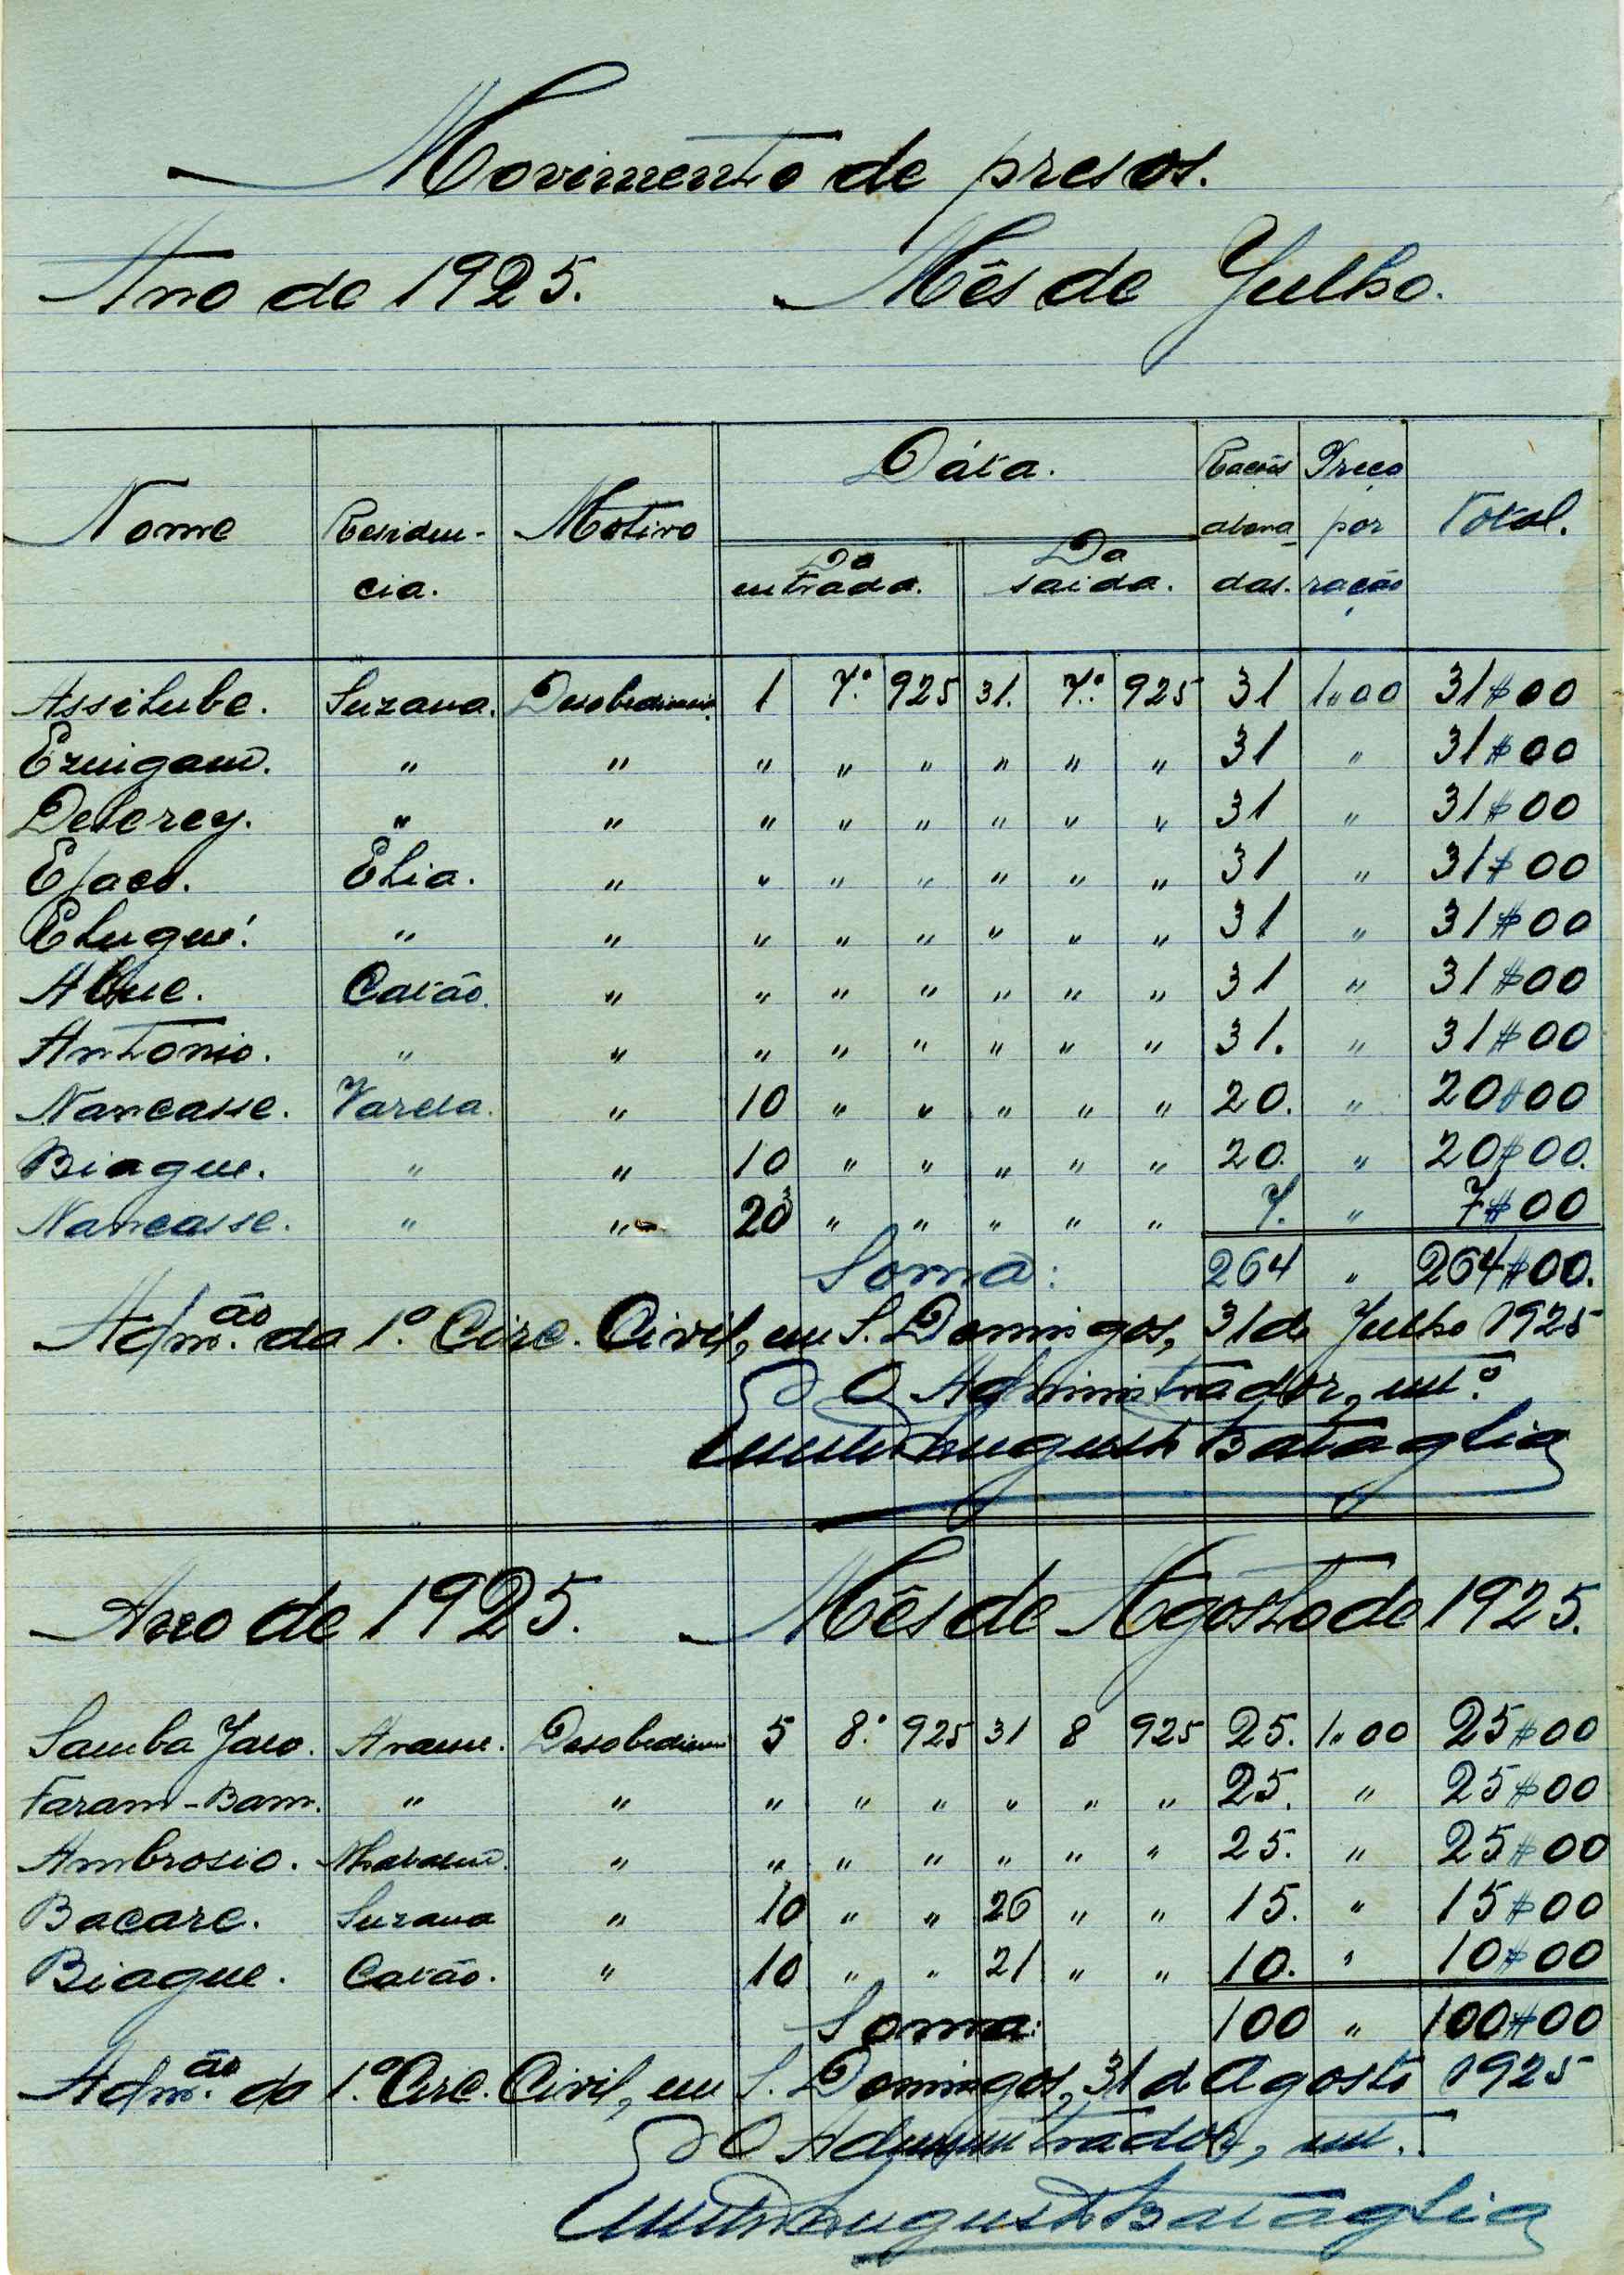 Movimento de presos.
Ano de 1925. Mês de Julho.
Nome Residen-cia. Motivo Dáta. Da entrada. Da saida. Rações abona-das. Preço por ração Total.
Suzana. Desobediencia 1 7º 925 31. 7º 925 31 1"00 31$00
" " " " " " " " 31 " 31$00
" " " " " " " " 31 " 31$00
Elia. " " " " " " " 31 " 31$00
Elugué. " " " " " " " " 31 " 31$00
Catão. " " " " " " " 31 " 31$00
António. " " " " " " " " 31. " 31$00
Nancasse. Varela. " 10 " " " " " 20. " 20$00
Biague. " " 10 " " " " " 20. " 20$00.
Nancasse. " " " " " " " 7. " 7$00
Soma: 264 " 264$00.
Adm.ão da 1.ª Circ. Civil, em S. Domingos, 31 de Julho 1925
O Administrador, int.º
Augusto Bataglia
Ano de 1925. Mês de Agosto de 1925.
Samba Jaco. Arame. Desobediencia 5 8º 925 31 8 925 25. 1"00 25$00
Faram-Bam. " " " " " " " " 25. " 25$00
Ambrosio. " " " " " " " 25. " 25$00
Bacare. Suzana " 10 " " 26 " " 15. " 15$00
Biague. Catão. " 10 " " 21 " " 10. " 10$00
Soma: 100 " 100$00
Adm.ão da 1.ª Circ. Civil, em S. Domingos, 31 de Agosto 1925
O Administrador, int.
Augusto Bataglia